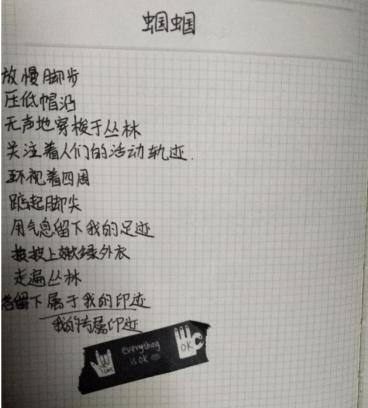 蝈蝈
放慢脚步
压低帽沿
无声地穿梭于丛林
关注着人们的活动轨迹.
环视着四周
踮起脚尖
用气息留下我的足迹
披披上嫩绿外衣
走遍丛林
留下属于我的印迹
我的专属印迹
everything
is ok
OK